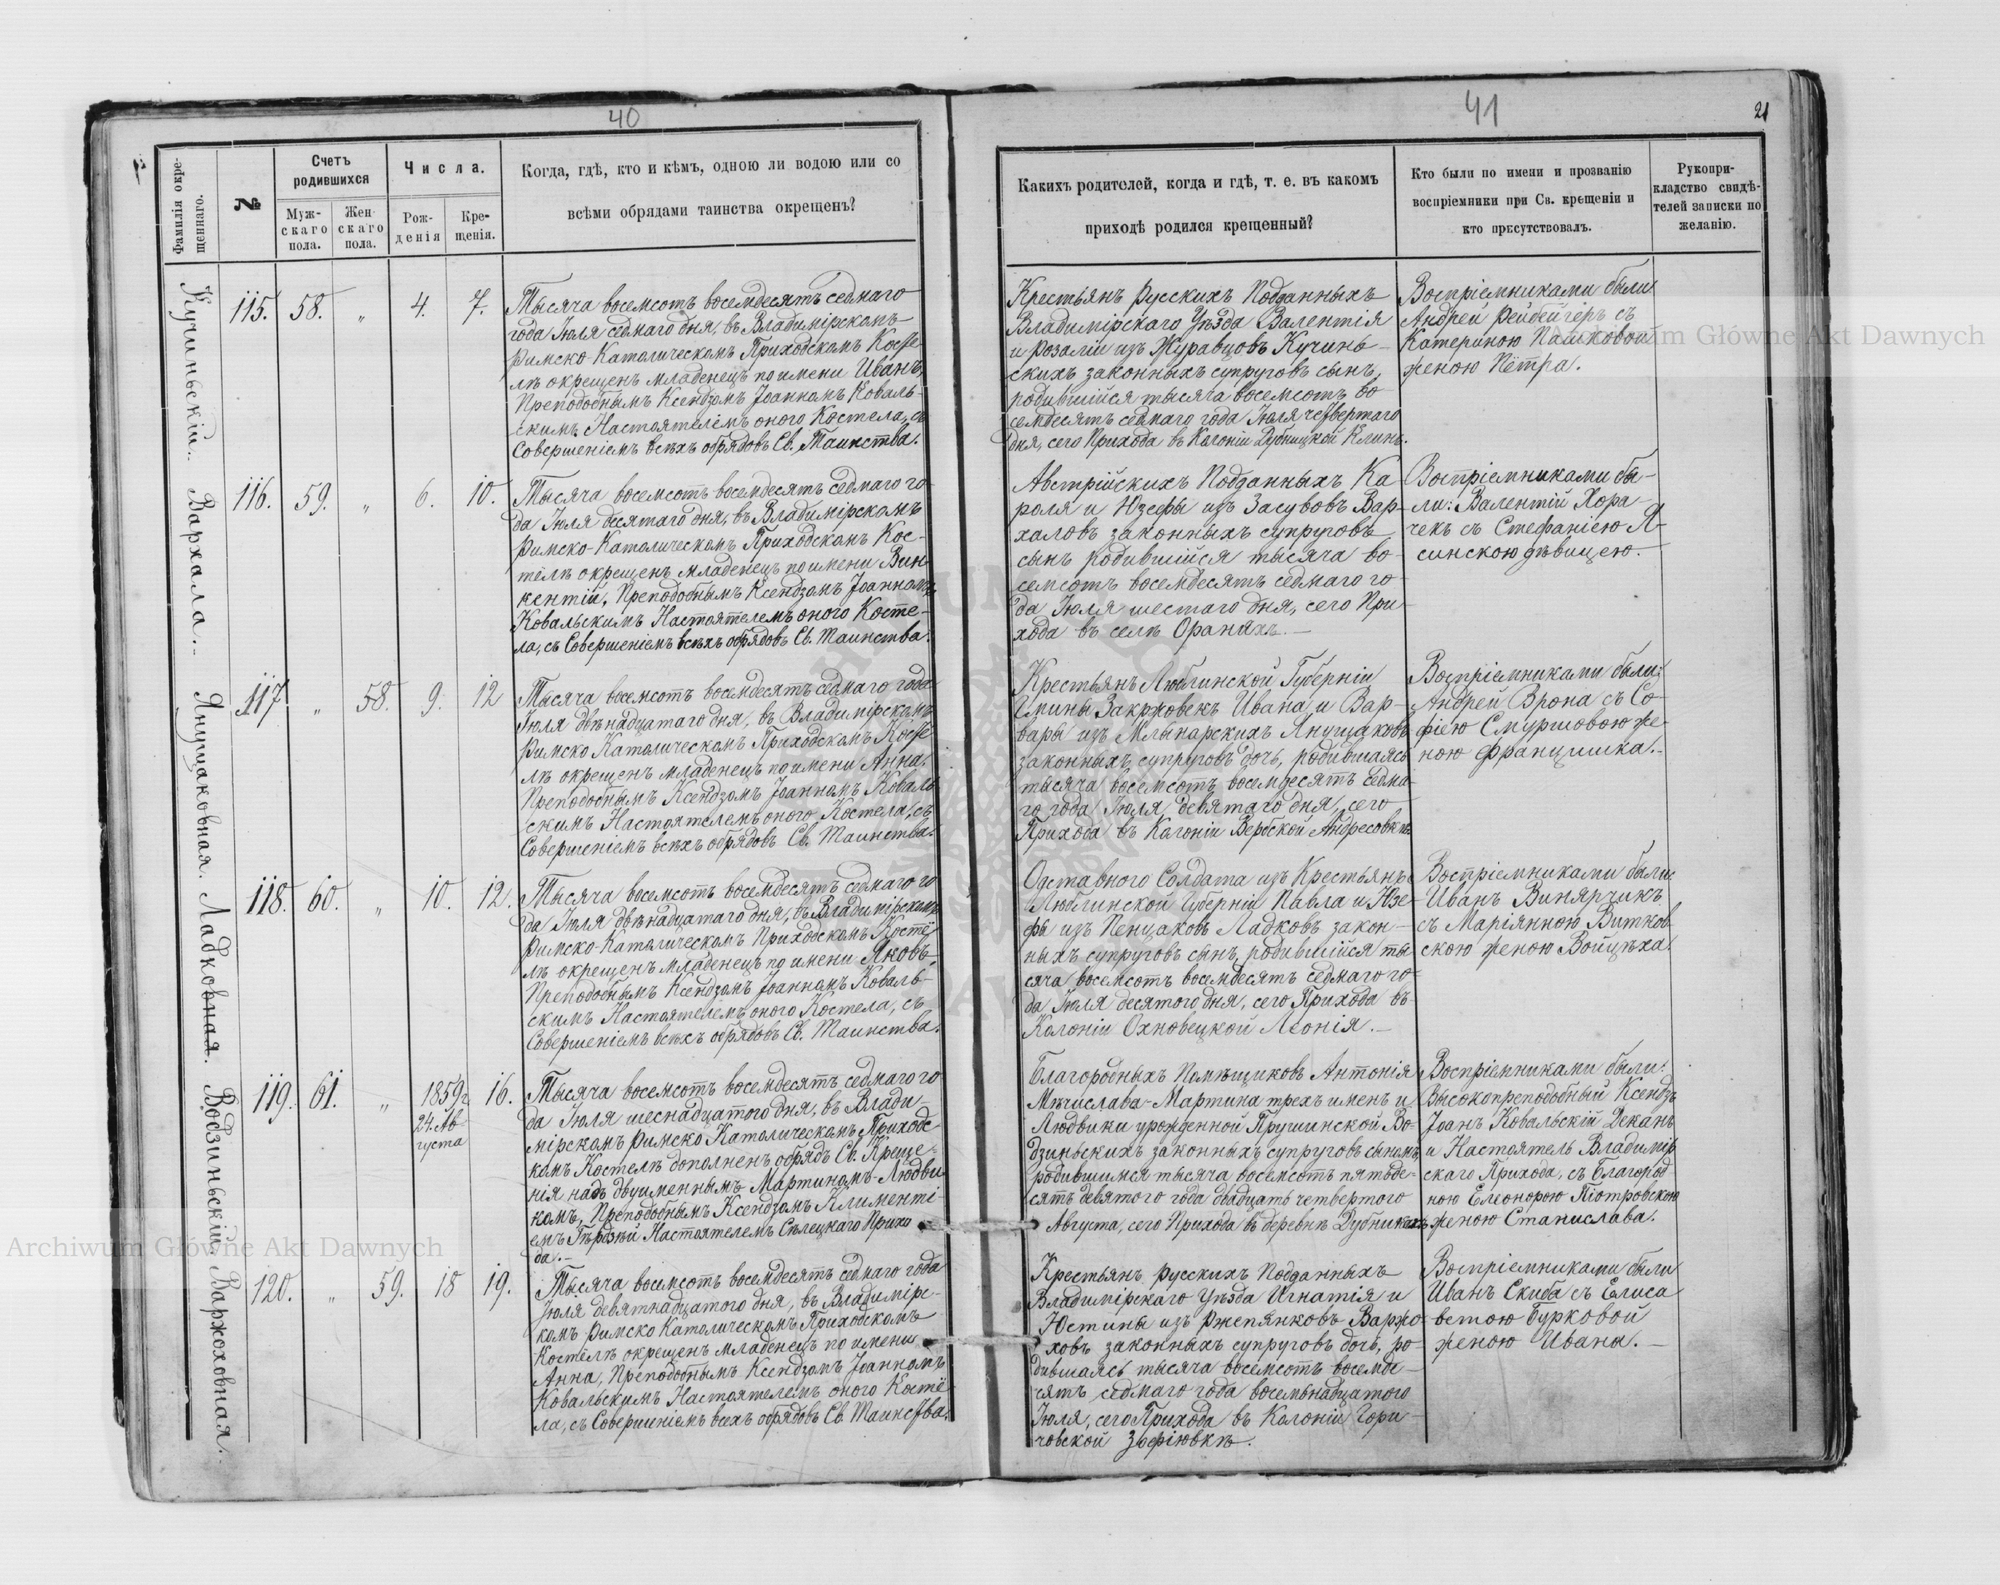 40
Фамилія окре-
щеннаго.
№
Счетъ
родившихся
Муж-
скаго
пола.
Жен-
скаго
пола.
Числа.
Рож-
денія
Кре-
щенія.
Когда, гдѣ, кто и кѣмъ, одною ли водою или со
всѣми обрядами таинства окрещенъ?
Кучиньскій.
115. 58. „ 4. 7.
Тысяча восемсотъ восемдесятъ седмаго
года Іюля седмаго дня, въ Владимірскомъ
Римско-Католическомъ Приходскомъ Косте
лѣ окрещенъ младенецъ по имени Иванъ,
Преподобнымъ Ксендзомъ Іоанномъ Коваль-
скимъ Настоятелемъ оного Костела, съ
Совершеніемъ всѣхъ обрядовъ Св. Таинства.
Вархала.
116. 59. „ 6. 10.
Тысяча восемсотъ восемдесятъ седмаго го-
да Іюля десятаго дня, въ Владимірскомъ
Римско-Католическомъ Приходскомъ Кос-
телѣ окрещенъ младенецъ по имени Вин-
кентій, Преподобнымъ Ксендзомъ Іоанномъ
Ковальскимъ Настоятелемъ оного Косте-
ла, съ Совершеніемъ всѣхъ обрядовъ Св. Таинства.
Янущаковная.
117 „ 58. 9. 12
Тысяча восемсотъ восемдесятъ седмаго года
Іюля двѣнадцатаго дня, въ Владимірскомъ
Римско Католическомъ Приходскомъ Косте
лѣ окрещенъ младенецъ по имени Анна.
Преподобнымъ Ксендзомъ Іоанномъ Коваль
скимъ Настоятелемъ оного Костела, съ
Совершеніемъ всѣхъ обрядовъ Св. Таинства.
Ладковная.
118. 60. „ 10. 12.
Тысяча восемсотъ восемдесятъ седмаго го
да Іюля двѣнадцатаго дня, въ Владимірскомъ
Римско-Католическомъ Приходскомъ Косте
лѣ окрещенъ младенецъ по имени Яковъ-
Преподобнымъ Ксендзомъ Іоанномъ Коваль-
скимъ Настоятелемъ оного Костела, съ
Совершеніемъ всѣхъ обрядовъ Св. Таинства.
Водзиньскій.
119. 61. „ 1859г. 16.
24. Ав-
густа
Тысяча восемсотъ восемдесятъ седмаго го
да Іюля шеснадцатого дня, въ Влади-
мірскомъ Римско Католическомъ Приходс-
комъ Костелѣ дополненъ обрядъ Св. Креще-
нія надъ двуименнымъ Мартиномъ-Людви
комъ, Преподобнымъ Ксендзомъ Клименті-
емъ Настоятелемъ Сѣлецкаго Прихо
да.-
Варжоховная.
120. „ 59. 18 19.
Тысяча восемсотъ восемдесятъ седмаго года
Іюля девятнадцатого дня, въ Владимірс-
комъ Римско Католическомъ Приходскомъ
Костелѣ окрещенъ младенецъ по имени
Анна, Преподобнымъ Ксендзомъ Іоанномъ
Ковальскимъ Настоятелемъ оного Косте
ла, съ Совершніемъ всѣхъ обрядовъ Св. Таинства.
41
21
Какихъ родителей, когда и гдѣ, т. е. въ какомъ
приходѣ родился крещенный?
Кто были по имени и прозванію
воспріемники при Св. крещеніи и
кто присутствовалъ.
Рукопри-
кладство свидѣ-
телей записки по
желанію.
Крестьянъ Русскихъ Подданныхъ
Владимірскаго Уѣзда Валентія
и Розаліи изъ Журавцовъ Кучинь-
скихъ законныхъ супруговъ сынъ,
родившійся тысяча восемсотъ во
семдесятъ седмаго года Іюля четвертаго
дня, сего Прихода въ Колоніи Дубницкой Клинъ.
Воспріемниками были
Андрей Рейдейгеръ съ
Катериною Пашковой
женою Петра.
Австрійскихъ Подданныхъ Ка
роля и Юзефы изъ Засувовъ Вар-
халовъ законныхъ супруговъ
сынъ родившійся тысяча во-
семсотъ восемдесятъ седмаго го-
да Іюля шестаго дня, сего При
хода въ селѣ Ораняхъ.-
Воспріемниками бы-
ли: Валентій Хора-
чекъ съ Стефаніею Я-
синскою дѣвицею.-
Крестьянъ Люблинской Губерніи
Гмины Закржовекъ Ивана и Вар-
вары изъ Млынарскихъ Янущаковъ
законныхъ супруговъ дочь, родившаясь
тысяча восемсотъ восемдесятъ седма-
го года Іюля девятаго дня, сего
Прихода въ Колоніи Вербской Андресовкѣ
Воспріемниками были:
Андрей Врона съ Со-
фіею Смуршовою же-
ною Францишка.-
Отставного Солдата изъ Крестьянъ
Люблинской Губерніи Павла и Юзе-
фы изъ Пенцаковъ Ладковъ закон-
ныхъ супруговъ сынъ, родившійся ты-
сяча восемсотъ восемдесятъ седмаго го-
да Іюля десятого дня, сего Прихода въ
Колоніи Охновецкой Леонія.-
Воспріемниками были
Иванъ Винярчикъ
съ Маріянною Витков-
скою женою Войцѣха.
Благородныхъ Помѣщиковъ Антонія
Мѣчислава-Мартина трехъ именъ и
Людвики урожденной Прушинской Во-
дзиньскихъ законныхъ супруговъ сыномъ,
родившимся тысяча восемсотъ пятьде-
сятъ девятого года двадцать четвертого
Августа, сего Прихода въ деревнѣ Дубникахъ
Воспріемниками были:
Высокопреподобный Ксендзъ
Іоанъ Ковальскій Деканъ
и Настоятель Владимір
скаго Прихода, съ Благород
ною Елеонорою Піотровскою
женою Станислава.
Крестьянъ Русскихъ Подданныхъ
Владимірскаго Уѣзда Игнатія и
Юстины изъ Ржепянковъ Варжо
ховъ законныхъ супруговъ дочь, ро-
дившаясь тысяча восемсотъ восемде-
сятъ седмаго года восемьнадцатого
Іюля, сего Прихода въ Колоніи Гори-
човской Зофіювкѣ.
Воспріемниками были
Иванъ Скиба съ Елиса
ветою Бурковой
женою Ивана.-
Archiwum Główne Akt Dawnych
Archiwum Główne Akt Dawnych